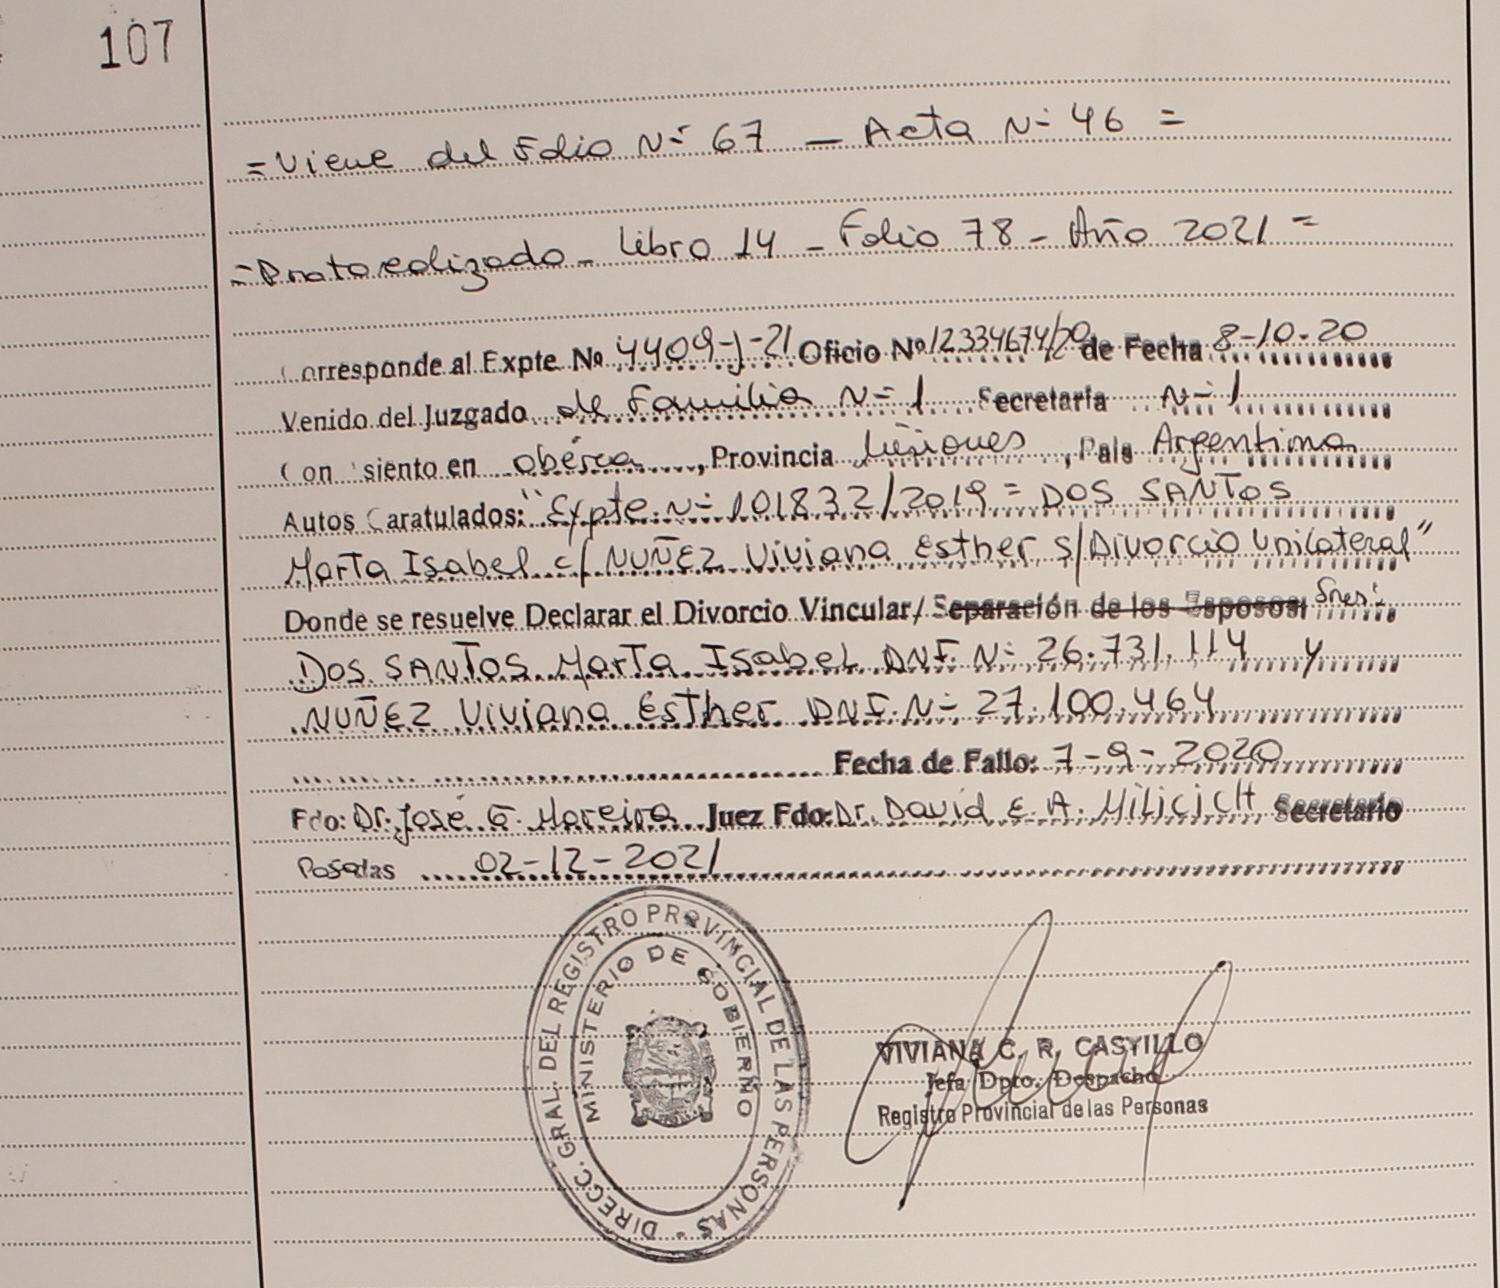 107
= Viene del Folio Nº 67 — Acta Nº 46 =
= Protocolizado - Libro 14 - Folio 78 - Año 2021 =
Corresponde al Expte Nº 4409-J-21 Oficio Nº 12334674/20 de Fecha 8-10-20
Venido del Juzgado de Familia Nº 1 Secretaria Nº 1
Con siento en Oberá, Provincia Misiones, Pais Argentina
Autos Caratulados: "Expte. Nº 101832/2019 = DOS SANTOS
Marta Isabel c/ NUÑEZ Viviana Esther s/Divorcio Unilateral"
Donde se resuelve Declarar el Divorcio Vincular/ Separación de los Esposos: Sres:
DOS SANTOS Marta Isabel DNI. Nº 26.731.114 y
NUÑEZ Viviana Esther DNI. Nº 27.100.464
Fecha de Fallo: 7-9-2020
Fdo: Dr. José G. Moreira Juez Fdo: Dr. David E. A. Milicich Secretario
Posadas 02-12-2021
DIRECC. GRAL. DEL REGISTRO PROVINCIAL DE LAS PERSONAS -
MINISTERIO DE GOBIERNO
VIVIANA C. R. CASTILLO
Jefa Dpto. Despacho
Registro Provincial de las Personas